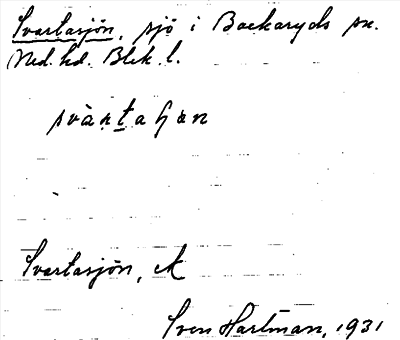 Svartasjön, sjö i Backaryds sn.
Med. hd. Blek. l.
Svartasjön, A
Sven Hartman, 1931